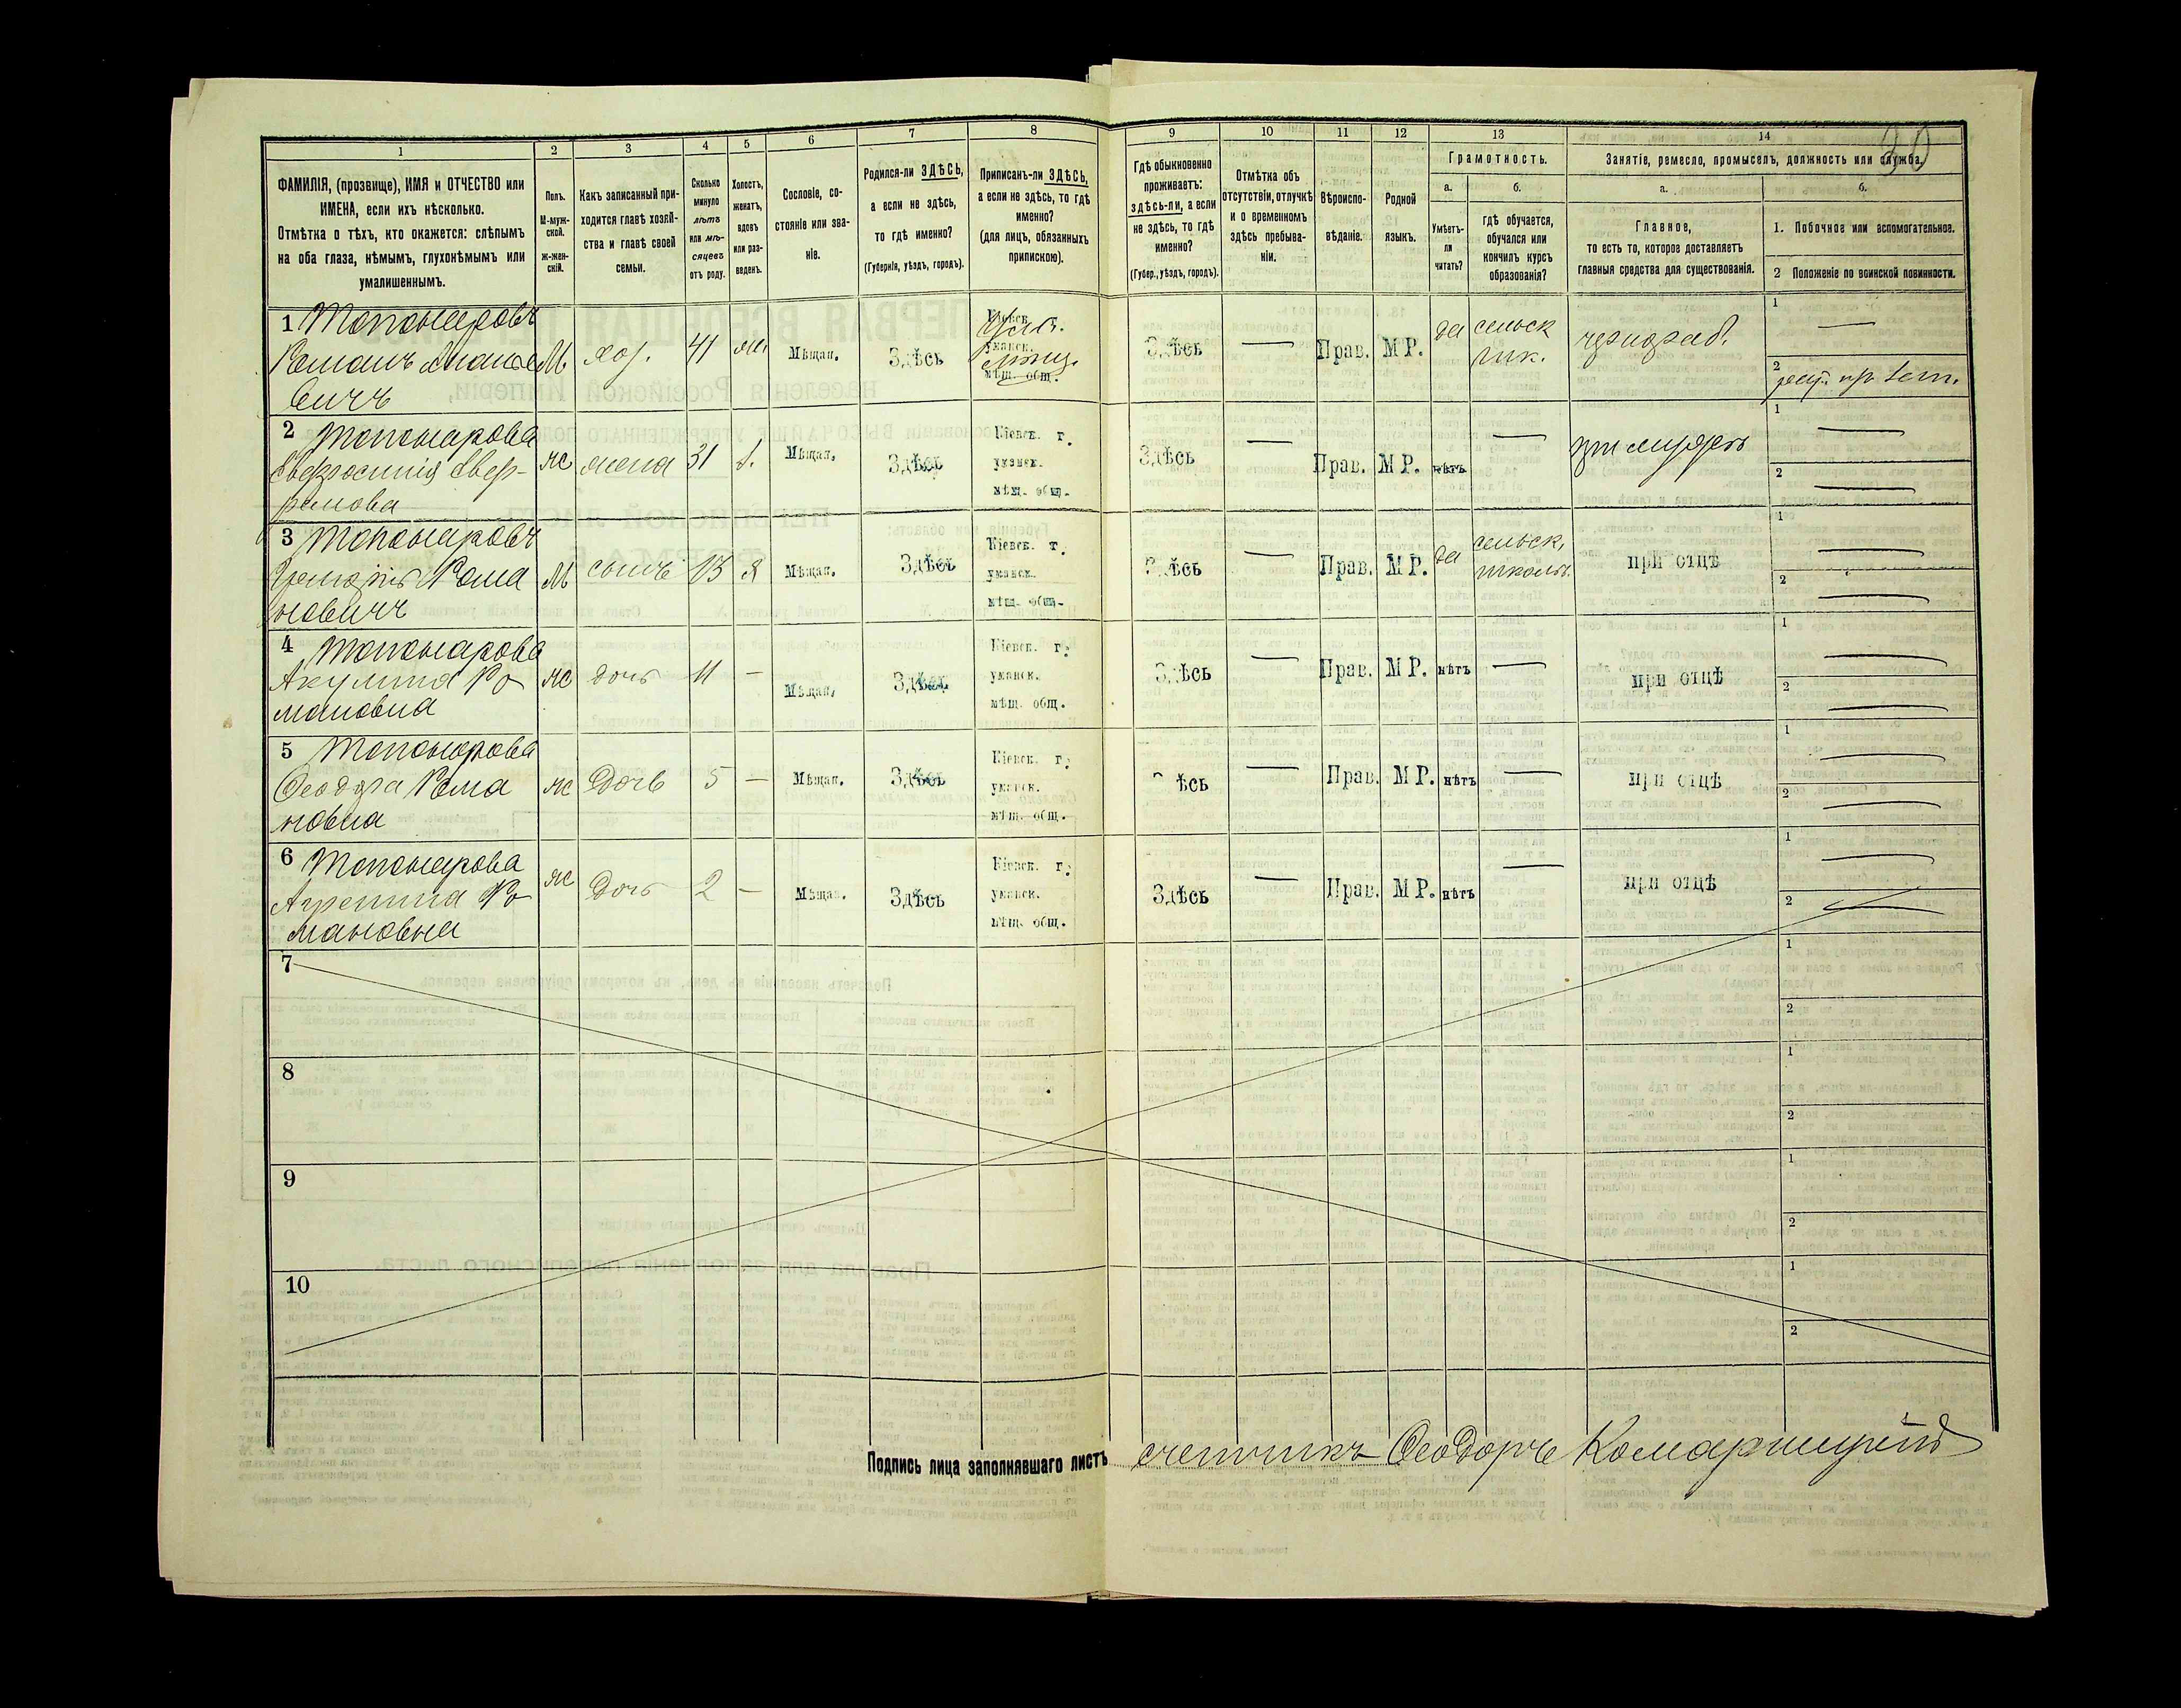 30
1 2 3 4 5 6 7 8 9 10 11 12 13 14
ФАМИЛІЯ, (прозвище), ИМЯ и ОТЧЕСТВО или
ИМЕНА, если ихъ нѣсколько.
Отмѣтка о тѣхъ, кто окажется: слѣпымъ
на оба глаза, нѣмымъ, глухонѣмымъ или
умалишеннымъ.
Полъ.
М-муж-
ской.
ж-жен-
скій.
Какъ записанный при-
ходится главѣ хозяй-
ства и главѣ своей
семьи.
Сколько
минуло
лѣтъ
или мѣ-
сяцевъ
отъ роду.
Холостъ,
женатъ,
вдовъ
или раз-
веденъ.
Сословіе, со-
стояніе или зва-
ніе.
Родился-ли ЗДѢСЬ,
а если не здѣсь,
то гдѣ именно?
(Губернія, уѣздъ, городъ).
Приписанъ-ли ЗДѢСЬ,
а если не здѣсь, то гдѣ
именно?
(для лицъ, обязанныхъ
припискою).
Гдѣ обыкновенно
проживаетъ:
здѣсь-ли, а если
не здѣсь, то гдѣ
именно?
(Губер., уѣздъ, городъ).
Отмѣтка объ
отсутствіи, отлучкѣ
и о временномъ
здѣсь пребыва-
ніи.
Вѣроиспо-
вѣданіе.
Родной
языкъ.
Грамотность.
а. б.
Умѣетъ-
ли
читать?
гдѣ обучается,
обучался или
кончилъ курсъ
образованія?
Занятіе, ремесло, промыселъ, должность или служба.
а. б.
Главное,
то есть то, которое доставляетъ
главныя средства для существованія.
1. Побочное или вспомогательное.
2 Положеніе по воинской повинности.
1 Романъ М хоз. 41 Мѣщан. Здѣсь
вичъ
Здѣсь — Прав. М Р. да сельск
шк.
1 —
2
2 Пономарова ж жена 31 Мѣщан. Здѣсь Кіевск. г.
уманск.
мѣщ. общ.
Здѣсь — Прав. М Р. нѣтъ — при мужѣ
1 —
2 —
3 Рома
новичъ М сынъ 13 Мѣщан. Здѣсь Кіевск. г.
уманск.
мѣщ. общ.
Здѣсь — Прав. М Р. да сельск.
школѣ. при отцѣ
1 —
2 —
4 Пономарова
Акулина Ро
мановна ж дочь 11 — Мѣщан. Здѣсь Кіевск. г.
уманск.
мѣщ. общ.
Здѣсь — Прав. М Р. нѣтъ — при отцѣ
1 —
2 —
5 Пономарова
Ѳеодора Рома
новна ж дочь 5 — Мѣщан. Здѣсь Кіевск. г.
уманск.
мѣщ. общ.
ѣсь — Прав. М Р. нѣтъ — при отцѣ
1 —
2 —
6 Пономарова
Ро
мановна ж дочь 2 — Мѣщан. Здѣсь Кіевск. г.
уманск.
мѣщ. общ.
Здѣсь — Прав. М Р. нѣтъ — при отцѣ
1 —
2 —
7 1
2
8 1
2
9 1
2
10 1
2
Подпись лица заполнявшаго листъ счетчикъ Ѳеодоръ Комарницкій